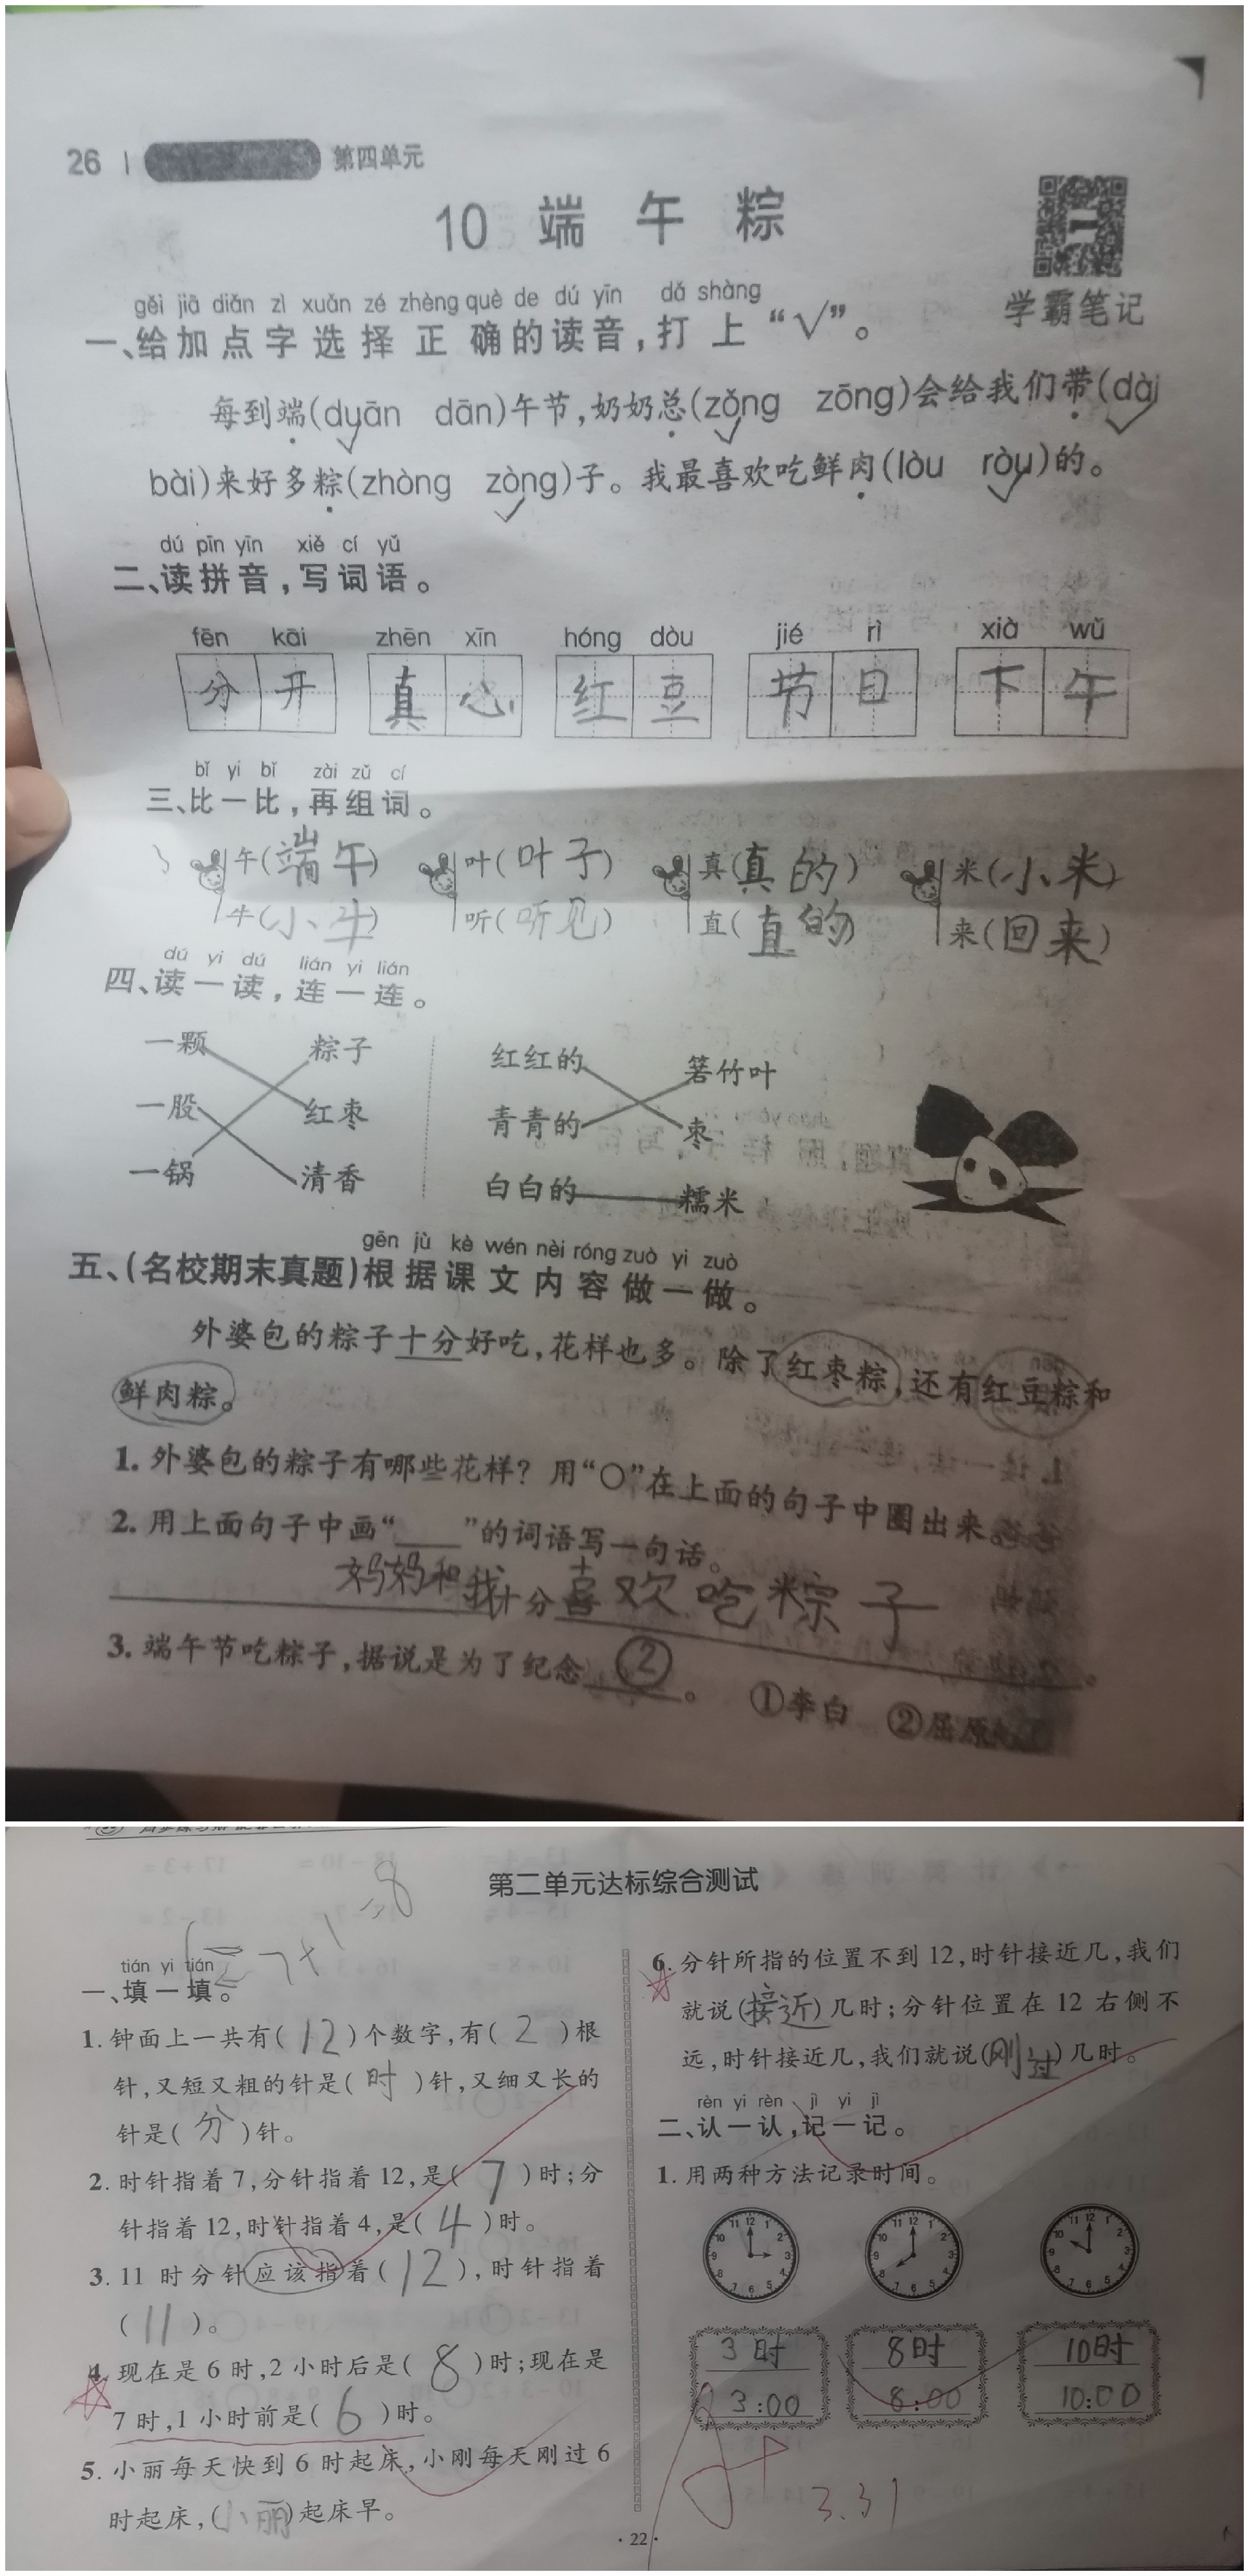 26 | 第四单元
10 端午粽
学霸笔记
gěi jiā diǎn zì xuǎn zé zhèng què de dú yīn dǎ shàng
一、给加点字选择正确的读音,打上“√”。
每到端(duān dān)午节,奶奶总(zǒng zōng)会给我们带(dài
bài)来好多粽(zhòng zòng)子。我最喜欢吃鲜肉(lòu ròu)的。
dú pīn yīn xiě cí yǔ
二、读拼音,写词语。
fēn kāi zhēn xīn hóng dòu jié rì xià wǔ
分开 真心 红豆 节日 下午
bǐ yi bǐ zài zǔ cí
三、比一比,再组词。
午(端午) 叶(叶子) 真(真的) 米(小米)
牛(小牛) 听(听见) 直(直的) 来(回来)
dú yi dú lián yi lián
四、读一读,连一连。
一颗 粽子 红红的 箬竹叶
一股 红枣 青青的 枣
一锅 清香 白白的 糯米
gēn jù kè wén nèi róng zuò yi zuò
五、(名校期末真题)根据课文内容做一做。
外婆包的粽子十分好吃,花样也多。除了红枣粽,还有红豆粽和
鲜肉粽。
1. 外婆包的粽子有哪些花样?用“○”在上面的句子中圈出来。
2. 用上面句子中画“___”的词语写一句话。
妈妈和我十分喜欢吃粽子
。
3. 端午节吃粽子,据说是为了纪念②。 ①李白 ②屈原
第二单元达标综合测试
7+1=8
tián yi tián
一、填一填。
1. 钟面上一共有(12)个数字,有(2)根
针,又短又粗的针是(时)针,又细又长的
针是(分)针。
2. 时针指着7,分针指着12,是(7)时;分
针指着12,时针指着4,是(4)时。
3. 11时分针应该指着(12),时针指着
(11)。
4. 现在是6时,2小时后是(8)时;现在是
7时,1小时前是(6)时。
5. 小丽每天快到6时起床,小刚每天刚过6
时起床,(小丽)起床早。
6. 分针所指的位置不到12,时针接近几,我们
就说(接近)几时;分针位置在12右侧不
远,时针接近几,我们就说(刚过)几时。
rèn yi rèn jì yi jì
二、认一认,记一记。
1. 用两种方法记录时间。
3时 8时 10时
3:00 8:00 10:00
3.31
· 22 ·